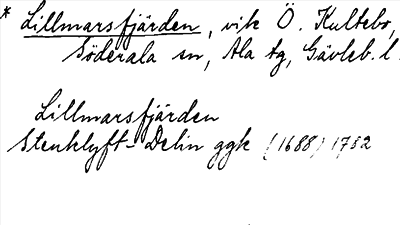 * Lillmarsfjärden, vik Ö. Kultebo,
Söderala sn, Ala tg, Gävleb. l.
Lillmarsfjärden
Stenklyft-Delin ggk (1688) 1752